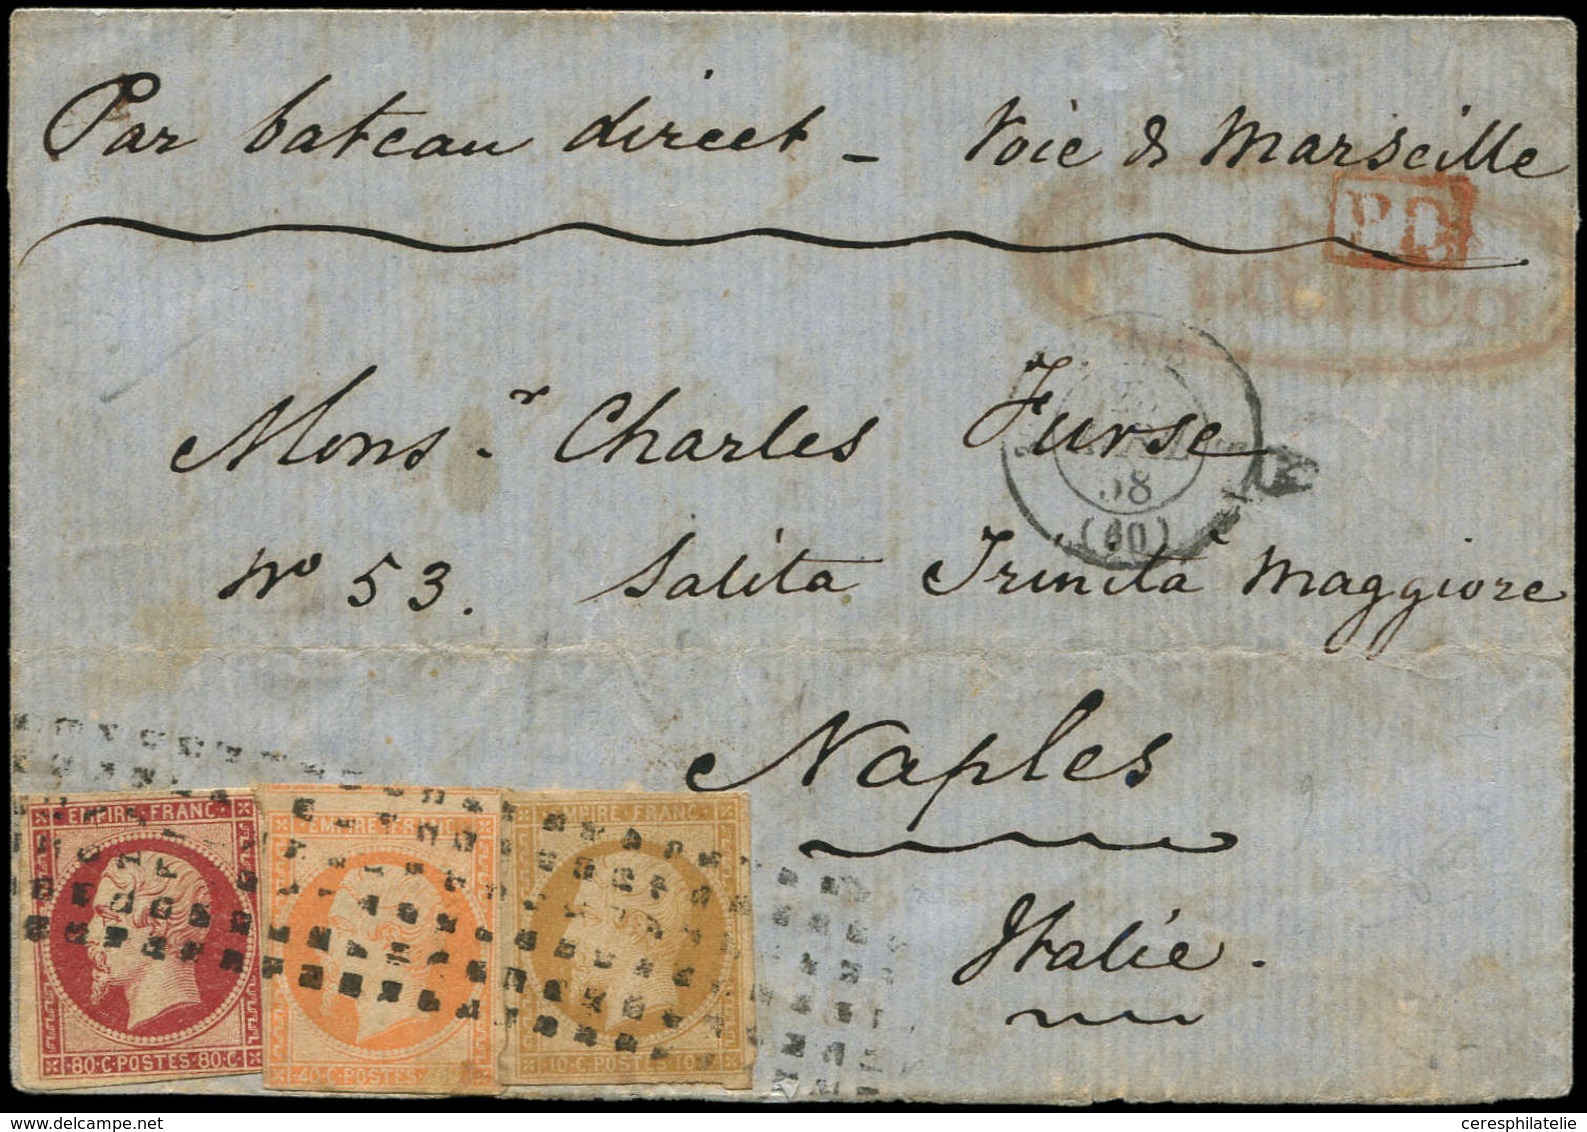 Par bateau direct - Voie de Marseille
P.D.
Franca
Mons.r Charles Furse
58
(60)
No 53. Salita Trinità Maggiore
Naples
Italie.
EMPIRE FRANC
80·C·POSTES·80·C
EMPIRE FRANC
40·C·POSTES
EMPIRE FRANC
10·C·POSTES·10·C
ceresphilatelie